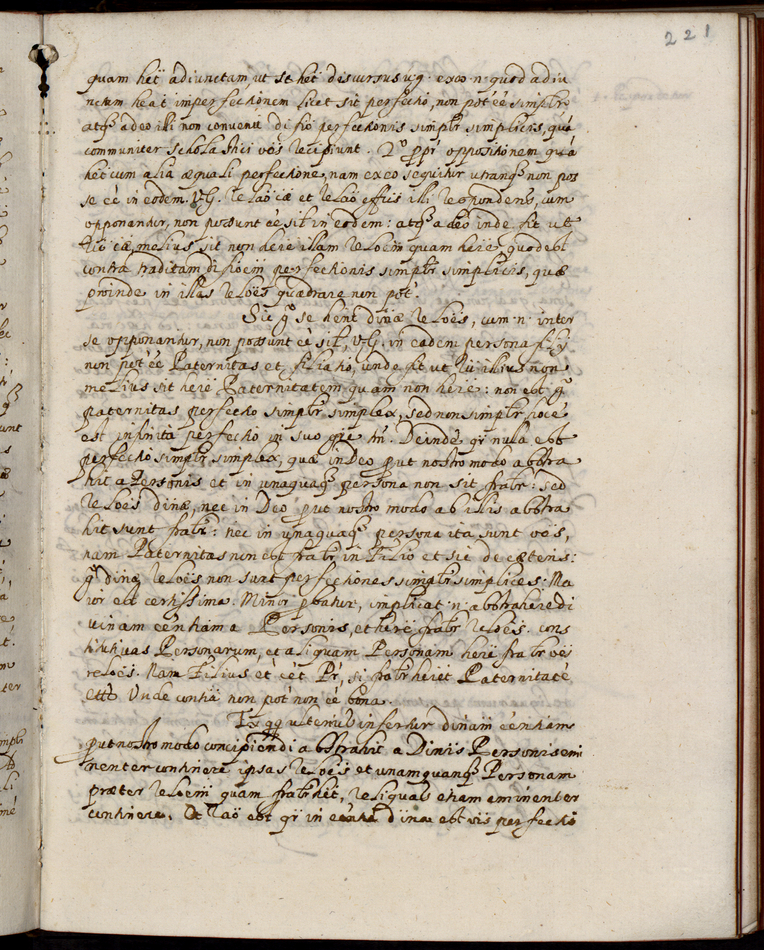 221
quam het adiunctam, ut st het descursus v.g. exco n. quod adiu
nctam heat imperfectionem licet sit perfectio, non pot ee simplr
atq adeo illi non convenit difio perfectionis simplr simplicis, quã
communiter scholastici oes recipiunt. 2º ppr oppositionem quã
het cum alia æquali perfectione, nam ex eo sequitur utramq non pos
se ee in eodem. V.G. relaõ cæ et relaõ effus illi respondens, cum
opponantur, non possunt ee sil in eodem: atq adeo inde fit ut
melius sit non here illam reloem quam here, quod est
contra traditam difioem perfectionis simplr simplicis, quæ
proinde in illas reloes quadrare non pot.
Sic g se hent dinæ reloes, cum n. inter
se opponantur, non possunt ee sil, V.G. in eadem persona filij
non pot ee Paternitas et filiatio, unde fit ut illius non
melius sit here Paternitatem quam non here: non est g
paternitas perfectio simplr simplex, sed non simplr
est infinita perfectio in suo gre tn. Deinde qr nulla est
perfectio simplr simplex, quæ in Deo put nostro modo abstra
hit a Personis et in unaquaq persona non sit fralr: sed
reloes dinæ, nec in Deo put nostro modo ab illis abstra
hit sunt fralr: nec in unaquaq persona ita sunt oes,
nam Paternitas non est fralr in Filio et sic de cæteris:
g dinæ reloes non sunt perfectiones simplr simplices. Ma
ior est certissima. Minor pbatur, implicat n. abstrahere di
vinam eentiam a Personis, et here fralr reloes cons
titutivas Personarum, et aliquam Personam here fralr oes
reloes. Nam Filius et eet Pr, si fralr heret Paternitatẽ
Unde contia non pot non ee bona.
Ex qq ulterius infertur dinam eentiam
put nostro modo concipiendi abstrahit a Dinis Personis emi
nenter continere ipsas reloes et unamquamq Personam
præter reloem quam fralr het, reliquas etiam eminenter
continere. Et raõ est qr in eentia dina est ois perfectio